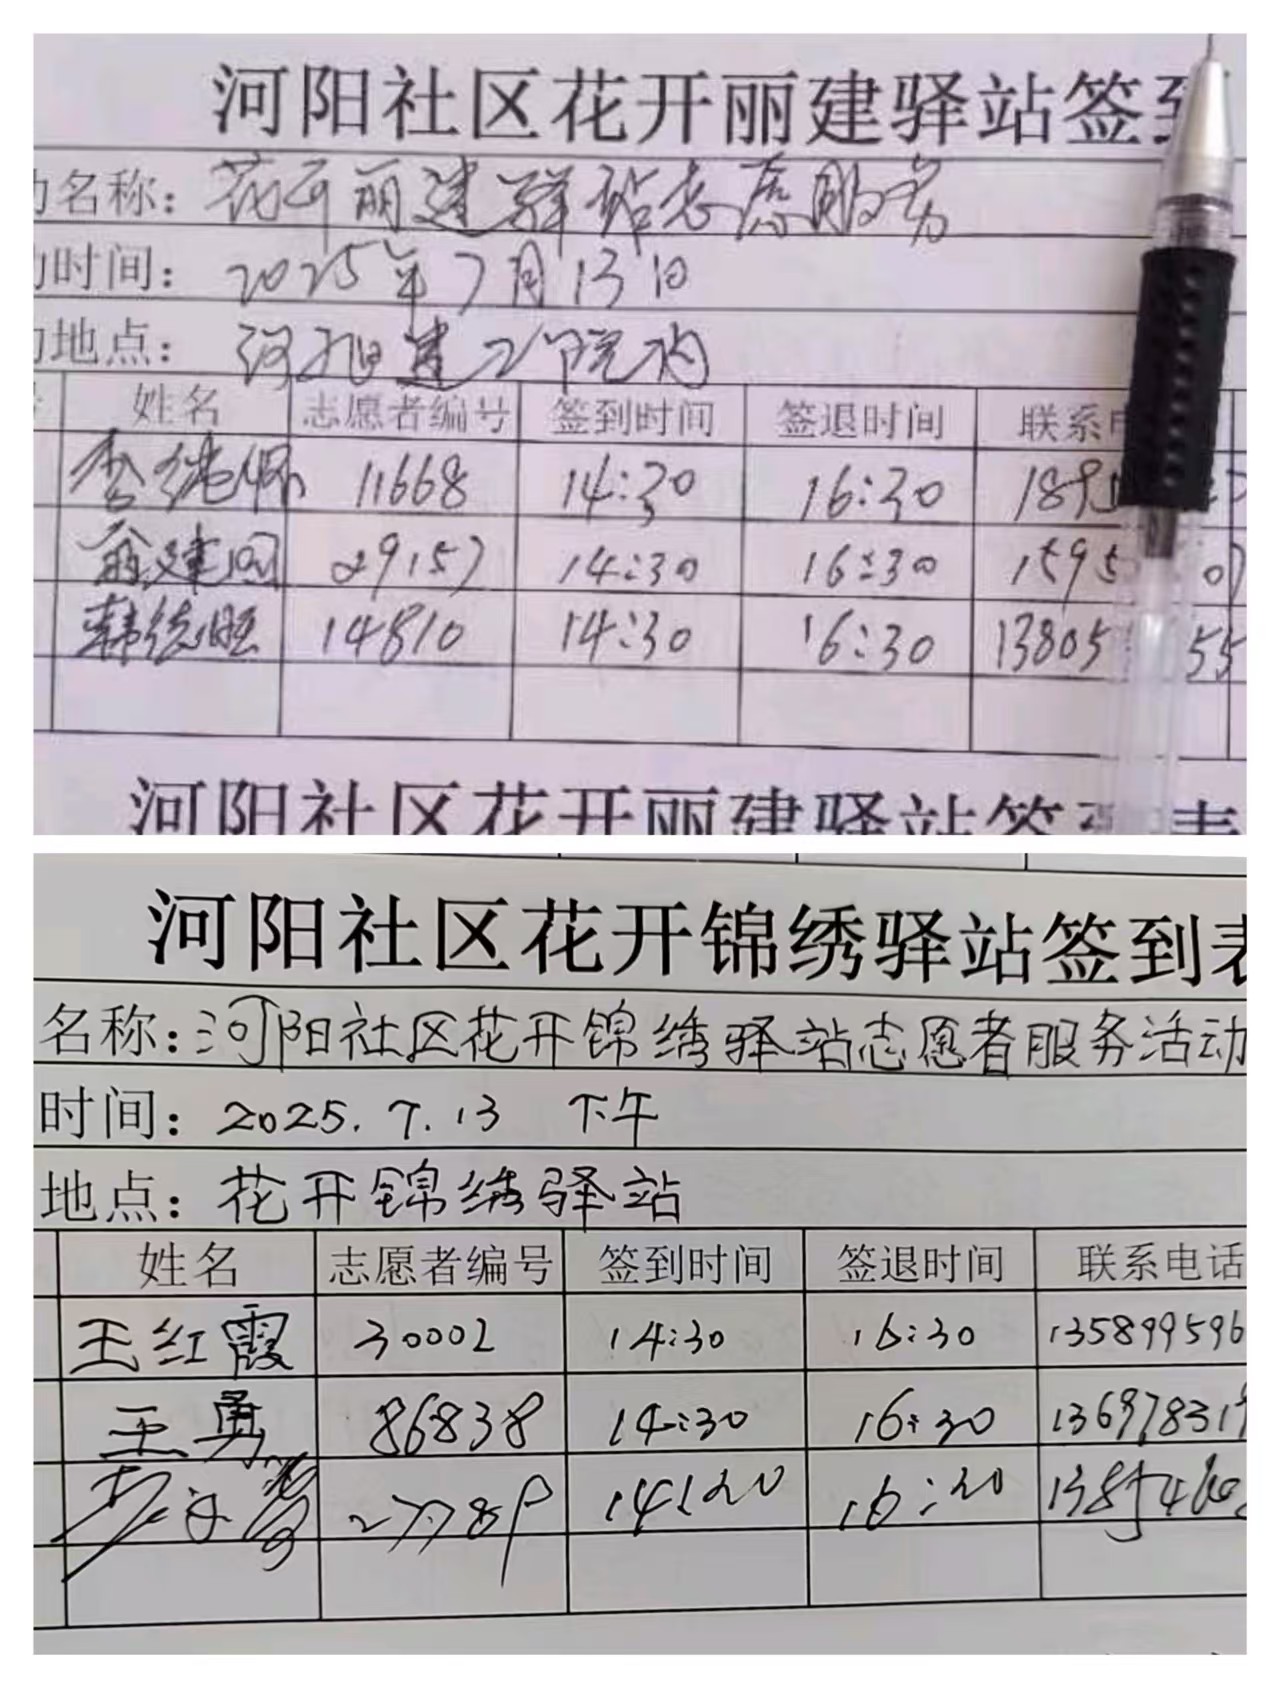 河阳社区花开丽建驿站签到
动名称：花开丽建驿站志愿服务
动时间：2025年7月13日
动地点：河阳建工院内
姓名 志愿者编号 签到时间 签退时间 联系电
李德怀 11668 14:30 16:30 189
翁建国 29157 14:30 16:30 1595 07
韩德胜 14810 14:30 16:30 13805 55
河阳社区花开丽建驿站签到表
河阳社区花开锦绣驿站签到表
名称：河阳社区花开锦绣驿站志愿者服务活动
时间：2025.7.13 下午
地点：花开锦绣驿站
姓名 志愿者编号 签到时间 签退时间 联系电话
王红霞 30002 14:30 16:30 135899596
王勇 86838 14:30 16:30 136978319
14:30 16:30